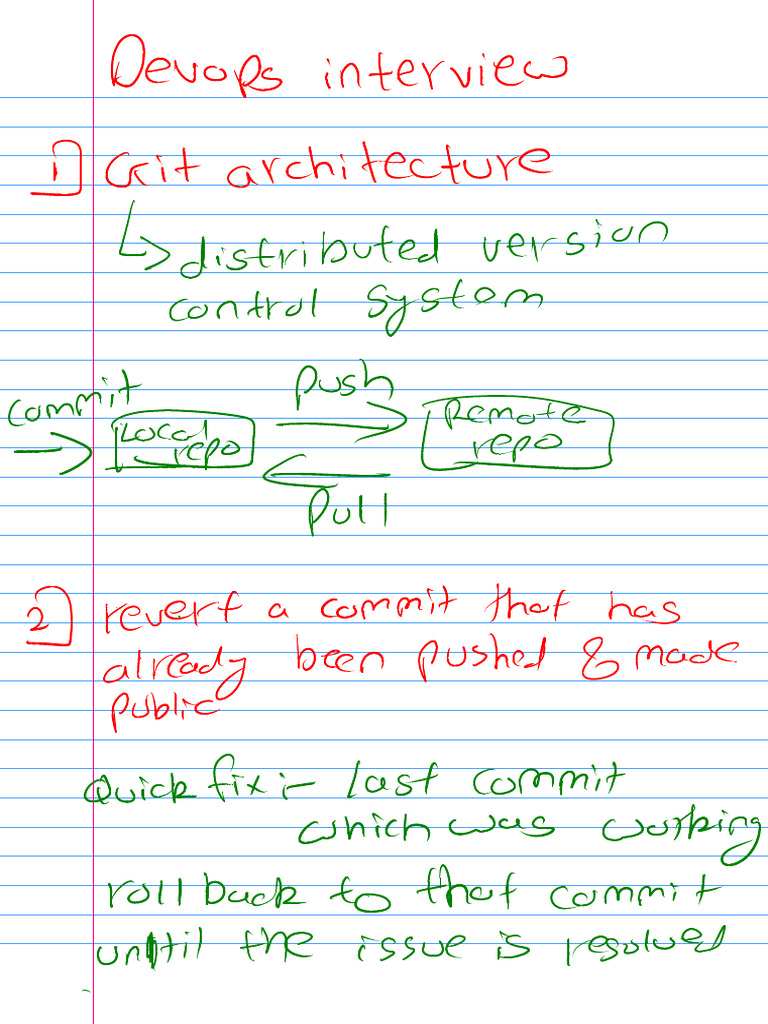 Devops interview
1] Git architecture
↳ distributed version
control system
commit
push
Local
repo
Remote
repo
pull
2] revert a commit that has
already been pushed & made
public
Quick fix :- last commit
which was working
roll back to that commit
until the issue is resolved